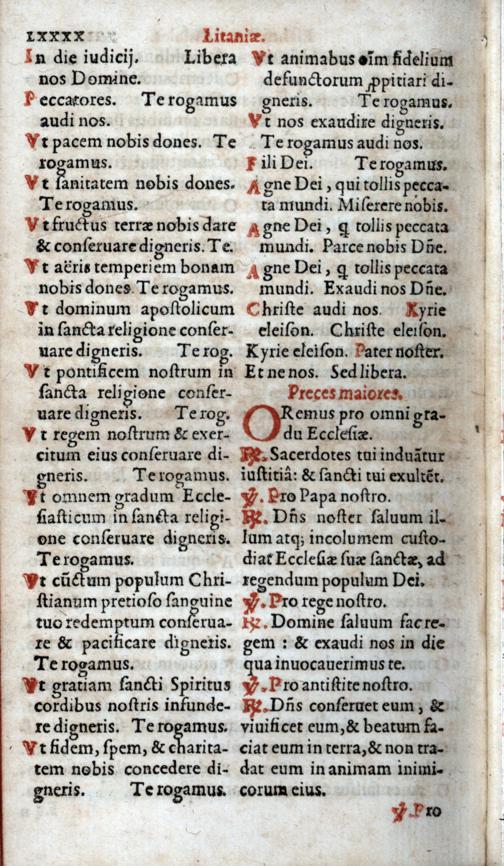 LXXXX
Litaniæ.
In die iudicij. Libera
nos Domine.
Peccatores. Te rogamus
audi nos.
Vt pacem nobis dones. Te
rogamus.
Vt ſanitatem nobis dones.
Te rogamus.
Vt fructus terræ nobis dare
& conſeruare digneris. Te.
Vt aëris temperiem bonam
nobis dones. Te rogamus.
Vt dominum apoſtolicum
in ſancta religione conſer-
uare digneris. Te rog.
Vt pontificem noſtrum in
ſancta religione conſer-
uare digneris. Te rog.
Vt regem noſtrum & exer-
citum eius conſeruare di-
gneris. Te rogamus.
Vt omnem gradum Eccle-
ſiaſticum in ſancta religi-
one conſeruare digneris.
Te rogamus.
Vt cūctum populum Chri-
ſtianum pretioſo ſanguine
tuo redemptum conſerua-
re & pacificare digneris.
Te rogamus.
Vt gratiam ſancti Spiritus
cordibus noſtris infunde-
re digneris. Te rogamus.
Vt fidem, ſpem, & charita-
tem nobis concedere di-
gneris. Te rogamus.
Vt animabus oīm fidelium
defunctorum ꝓpitiari di-
gneris. Te rogamus.
Vt nos exaudire digneris.
Te rogamus audi nos.
Fili Dei. Te rogamus.
Agne Dei, qui tollis pecca-
ta mundi. Miſerere nobis.
Agne Dei, q̃ tollis peccata
mundi. Parce nobis Dñe.
Agne Dei, q̃ tollis peccata
mundi. Exaudi nos Dñe.
Chriſte audi nos. Kyrie
eleiſon. Chriſte eleiſon.
Kyrie eleiſon. Pater noſter.
Et ne nos. Sed libera.
Preces maiores.
ORemus pro omni gra-
du Eccleſiæ.
℟. Sacerdotes tui induātur
iuſtitiâ: & ſancti tui exultēt.
℣. Pro Papa noſtro.
℟. Dñs noſter ſaluum il-
lum atq; incolumem cuſto-
diat Eccleſiæ ſuæ ſanctæ, ad
regendum populum Dei.
℣. Pro rege noſtro.
℟. Domine ſaluum fac re-
gem : & exaudi nos in die
qua inuocauerimus te.
℣. Pro antiſtite noſtro.
℟. Dñs conſeruet eum, &
viuificet eum, & beatum fa-
ciat eum in terra, & non tra-
dat eum in animam inimi-
corum eius.
℣. Pro